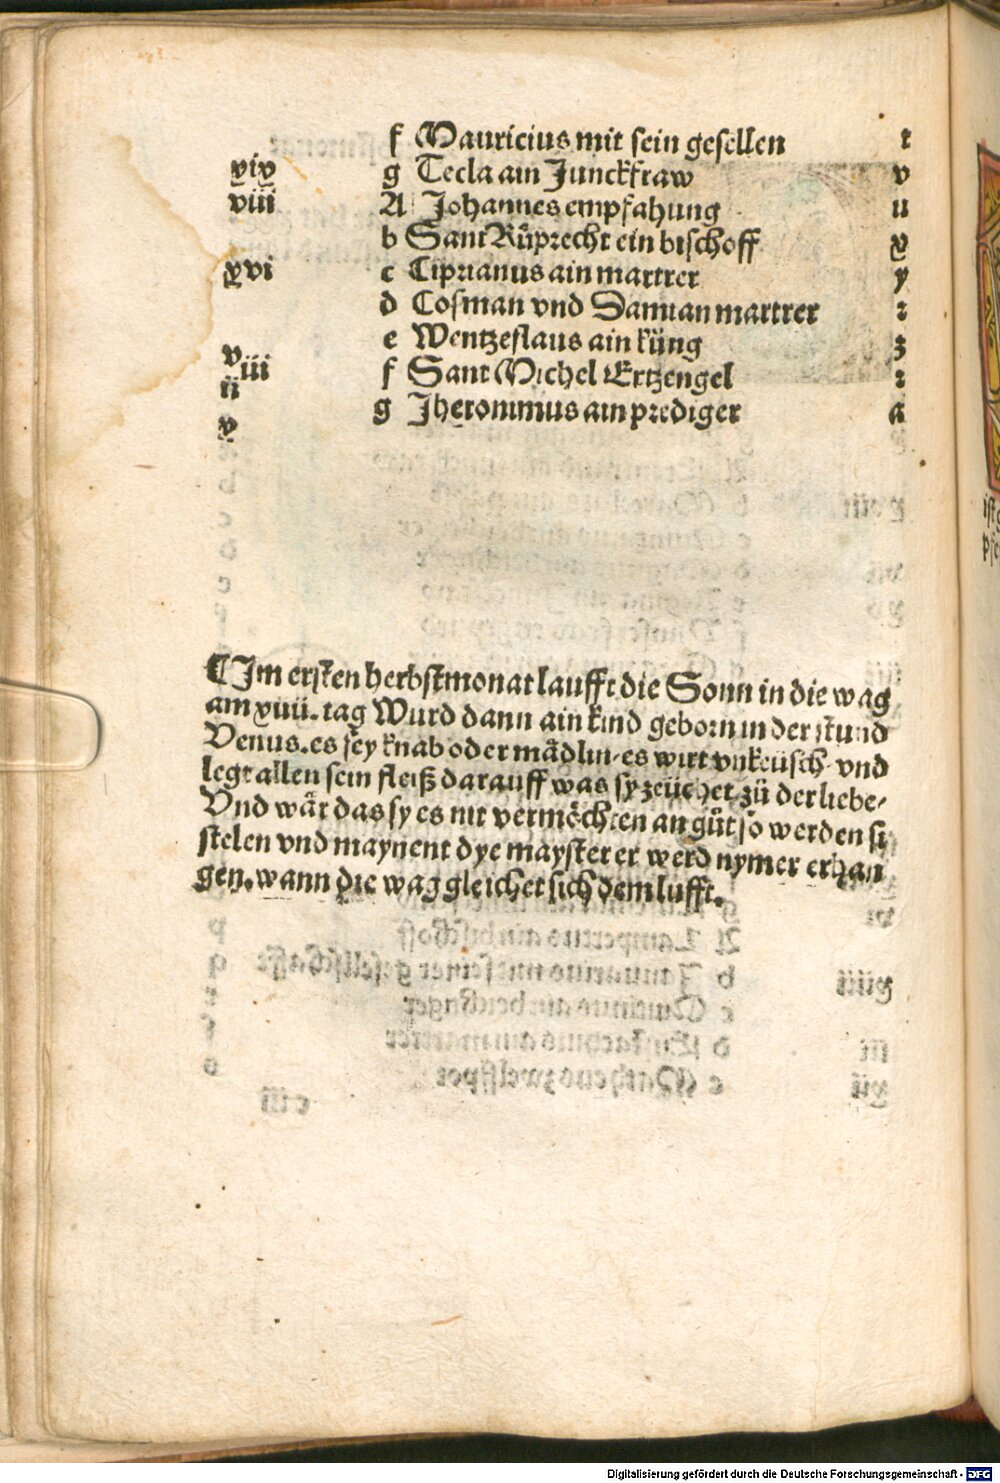 f Mauricius mit sein gesellen t
xix g Tecla ain Junckfraw v
viii A Johannes empfahung u
b Sant Růprecht ein bischoff x
xvi c Ciprianus ain martrer y
d Cosman vnd Damian martrer z
e Wentzeslaus ain küng ʒ
viii f Sant Michel Ertzengel z
ii
g Jheronimus ain prediger a
v
¶ Im ersten herbstmonat laufft die Sonn in die wag
am xviii. tag Wurd dann ain kind geborn in der stund
Venus. es sey knab oder mädlin, es wirt vnkeüsch vnd
legt allen sein fleiß darauff was sy zeüchet zů der liebe,
Vnd wär das sy es nit vermöchten an gůt so werden si
stelen vnd maynent dye mayster er werd nymer erhan
gen. wann die wag gleichet sich dem lufft.
Digitalisierung gefördert durch die Deutsche Forschungsgemeinschaft - DFG